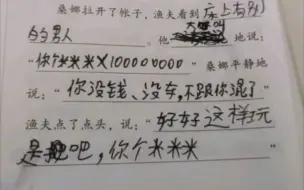 桑娜拉开了帐子，渔夫看到床上有别
的男人。他大喊大叫地说：
“你个米米米X100000000”桑娜平静地
说：“你没钱、没车，不跟你混了”
渔夫点了点头，说：“好好这样玩
是吧，你个米米米”